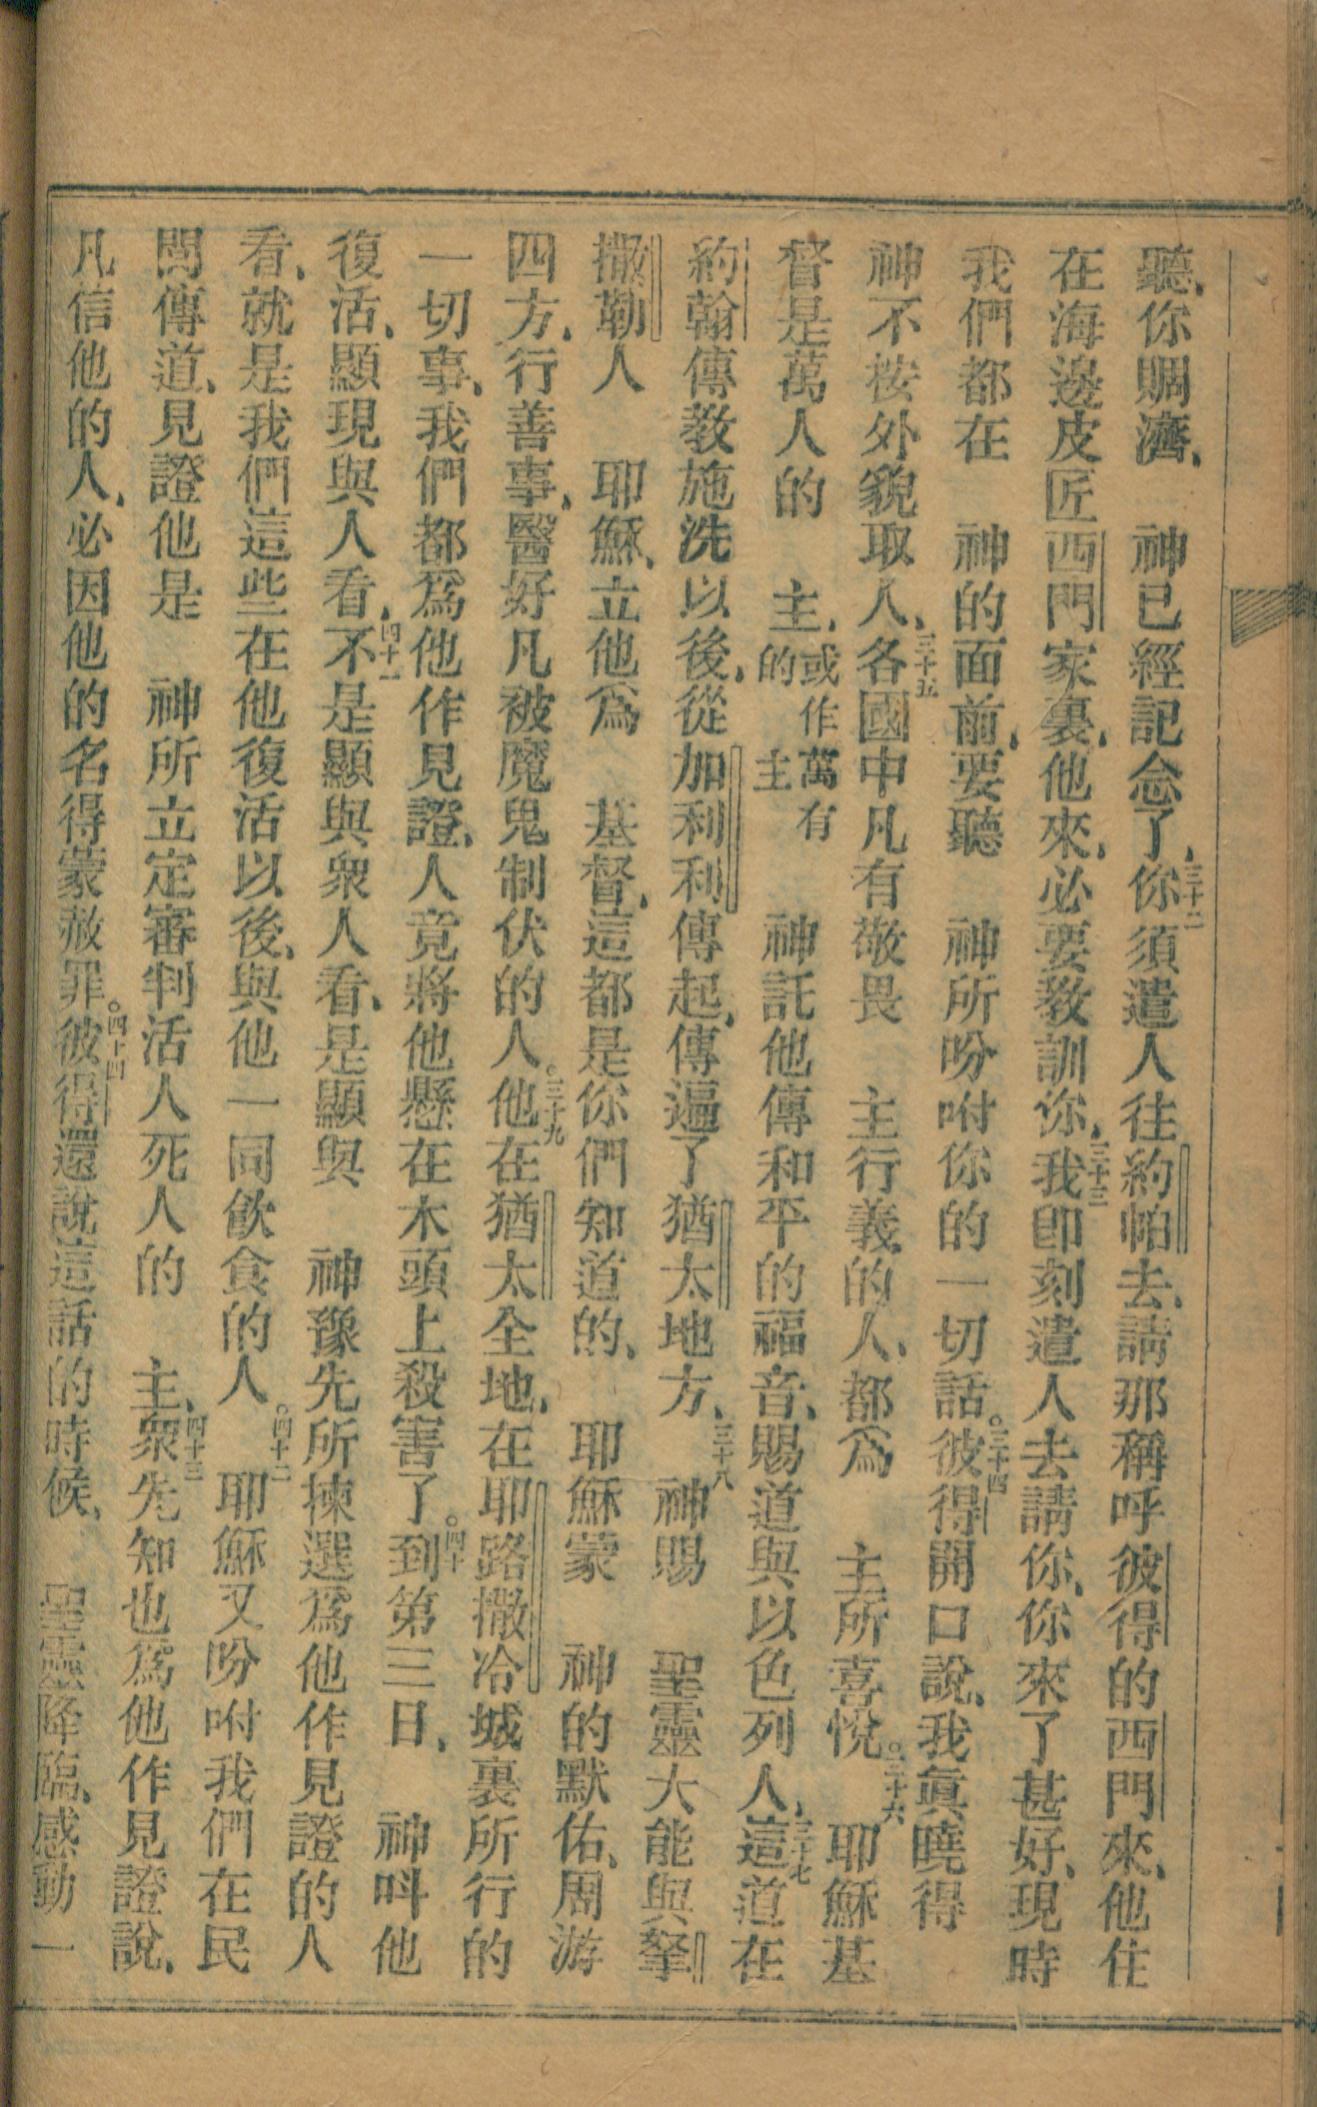 聽、你賙濟、神已經記念了、三十二你須遣人往約帕去、請那稱呼彼得的西門來、他住
在海邊皮匠西門家裏、他來、必要教訓你、三十三我即刻遣人去請你、你來了甚好、現時
我們都在神的面前、要聽神所吩咐你的一切話。三十四彼得開口說、我眞曉得
神不按外貌取人、三十五各國中凡有敬畏主行義的人、都爲主所喜悅。三十六耶穌基
督是萬人的主、或作萬有的主神託他傳和平的福音、賜道與以色列人、三十七這道在
約翰傳教施洗以後、從加利利傳起、傳遍了猶太地方、三十八神賜聖靈大能與拏
撒勒人耶穌、立他爲基督、這都是你們知道的、耶穌蒙神的默佑、周游
四方、行善事、醫好凡被魔鬼制伏的人。三十九他在猶太全地、在耶路撒冷城裏所行的
一切事、我們都爲他作見證、人竟將他懸在木頭上殺害了。四十到第三日、神叫他
復活、顯現與人看、四十一不是顯與衆人看、是顯與神豫先所揀選爲他作見證的人
看、就是我們這些在他復活以後、與他一同飮食的人。四十二耶穌又吩咐我們在民
間傳道、見證他是神所立定審判活人死人的主、四十三衆先知也爲他作見證說、
凡信他的人、必因他的名得蒙赦罪。四十四彼得還說這話的時候、聖靈降臨、感動一